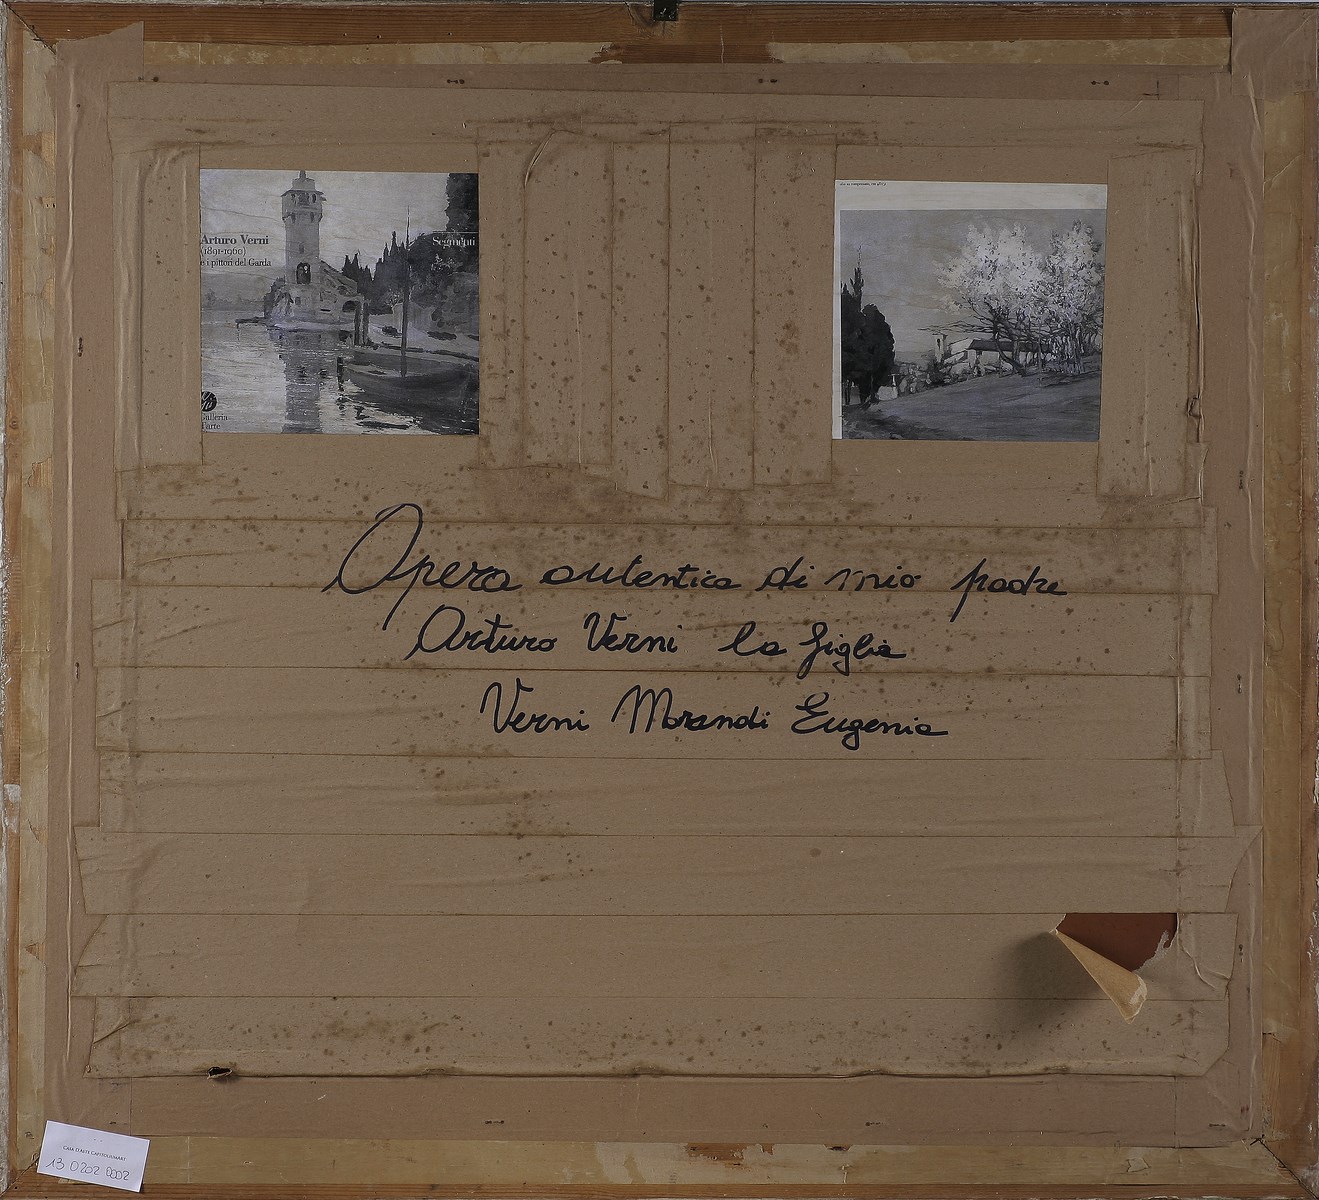 Arturo Verni
(1891-1960)
e i pittori del Garda
Segmenti
Galleria
d'arte
Opera autentica di mio padre
Arturo Verni la figlia
Verni Morandi Eugenia
CASA D'ASTE CAPITOLIUMART
13 0202 0002